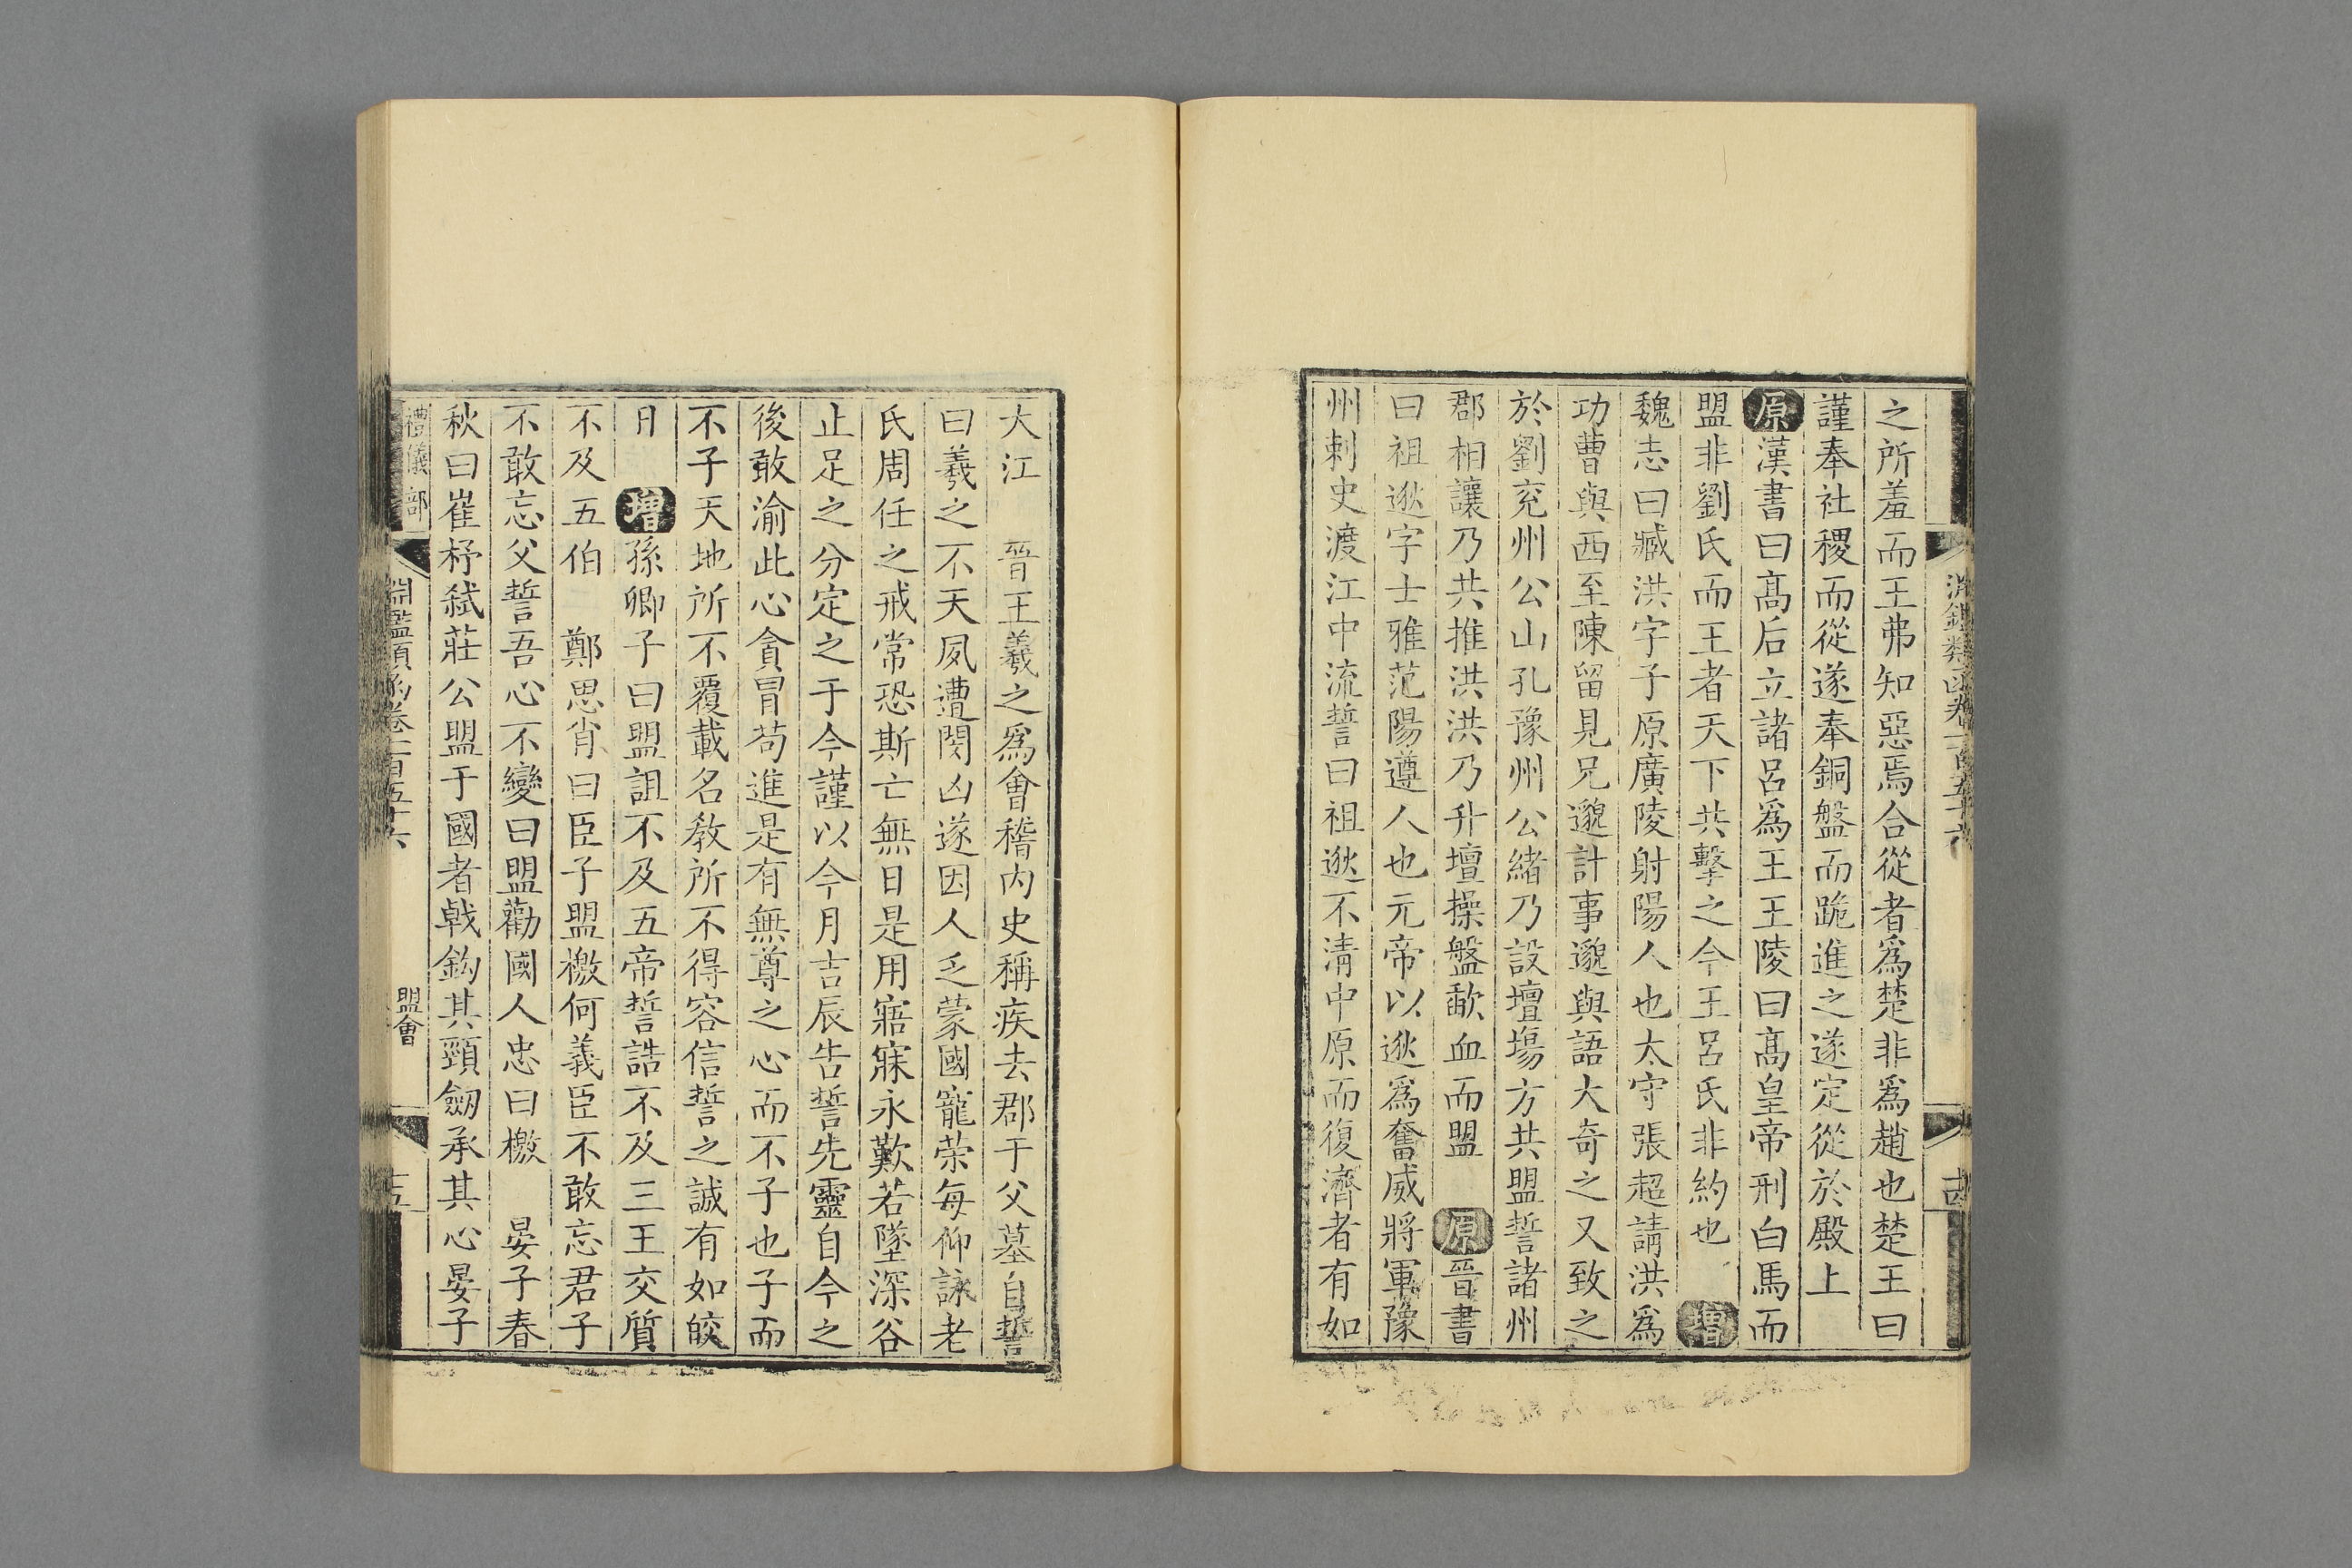 淵鑑類函卷一百五十六
之所羞而王弗知惡焉合從者爲楚非爲趙也楚王曰
謹奉社稷而從遂奉銅盤而跪進之遂定從於殿上
原漢書曰髙后立諸呂爲王王陵曰髙皇帝刑白馬而
盟非劉氏而王者天下共擊之今王呂氏非約也 增
魏志曰臧洪字子原廣陵射陽人也太守張超請洪爲
功曹與西至陳留見兄邈計事邈與語大奇之又致之
於劉兖州公山孔豫州公緒乃設壇場方共盟誓諸州
郡相讓乃共推洪洪乃升壇操盤歃血而盟 原晉書
曰祖逖字士雅范陽遵人也元帝以逖爲奮威將軍豫
州刺史渡江中流誓曰祖逖不淸中原而復濟者有如
大江 晉王羲之爲會稽內史稱疾去郡于父墓自誓
曰羲之不天夙遭閔凶遂因人乏蒙國寵荣每仰詠老
氏周任之戒常恐斯亡無日是用寤寐永歎若墜深谷
止足之分定之于今謹以今月吉辰告誓先靈自今之
後敢渝此心貪冒苟進是有無尊之心而不子也子而
不子天地所不覆載名教所不得容信誓之誠有如皎
日 增孫卿子曰盟詛不及五帝誓誥不及三王交質
不及五伯 鄭思肖曰臣子盟檄何義臣不敢忘君子
不敢忘父誓吾心不變曰盟勸國人忠曰檄 晏子春
秋曰崔杼弑莊公盟于國者戟鈎其頸劒承其心晏子
禮儀部
淵鑑類函卷一百五十六
盟會
十五